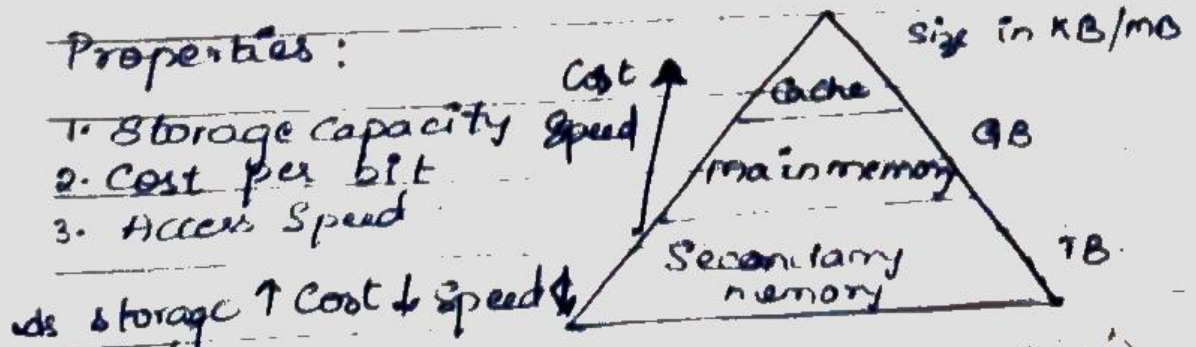 Properties:
1. Storage capacity
2. Cost per bit
3. Access Speed
as storage ↑ Cost ↓ Speed ↓
Cost
Speed
Size in KB/MB
Cache
GB
main memory
TB.
Secondary
memory